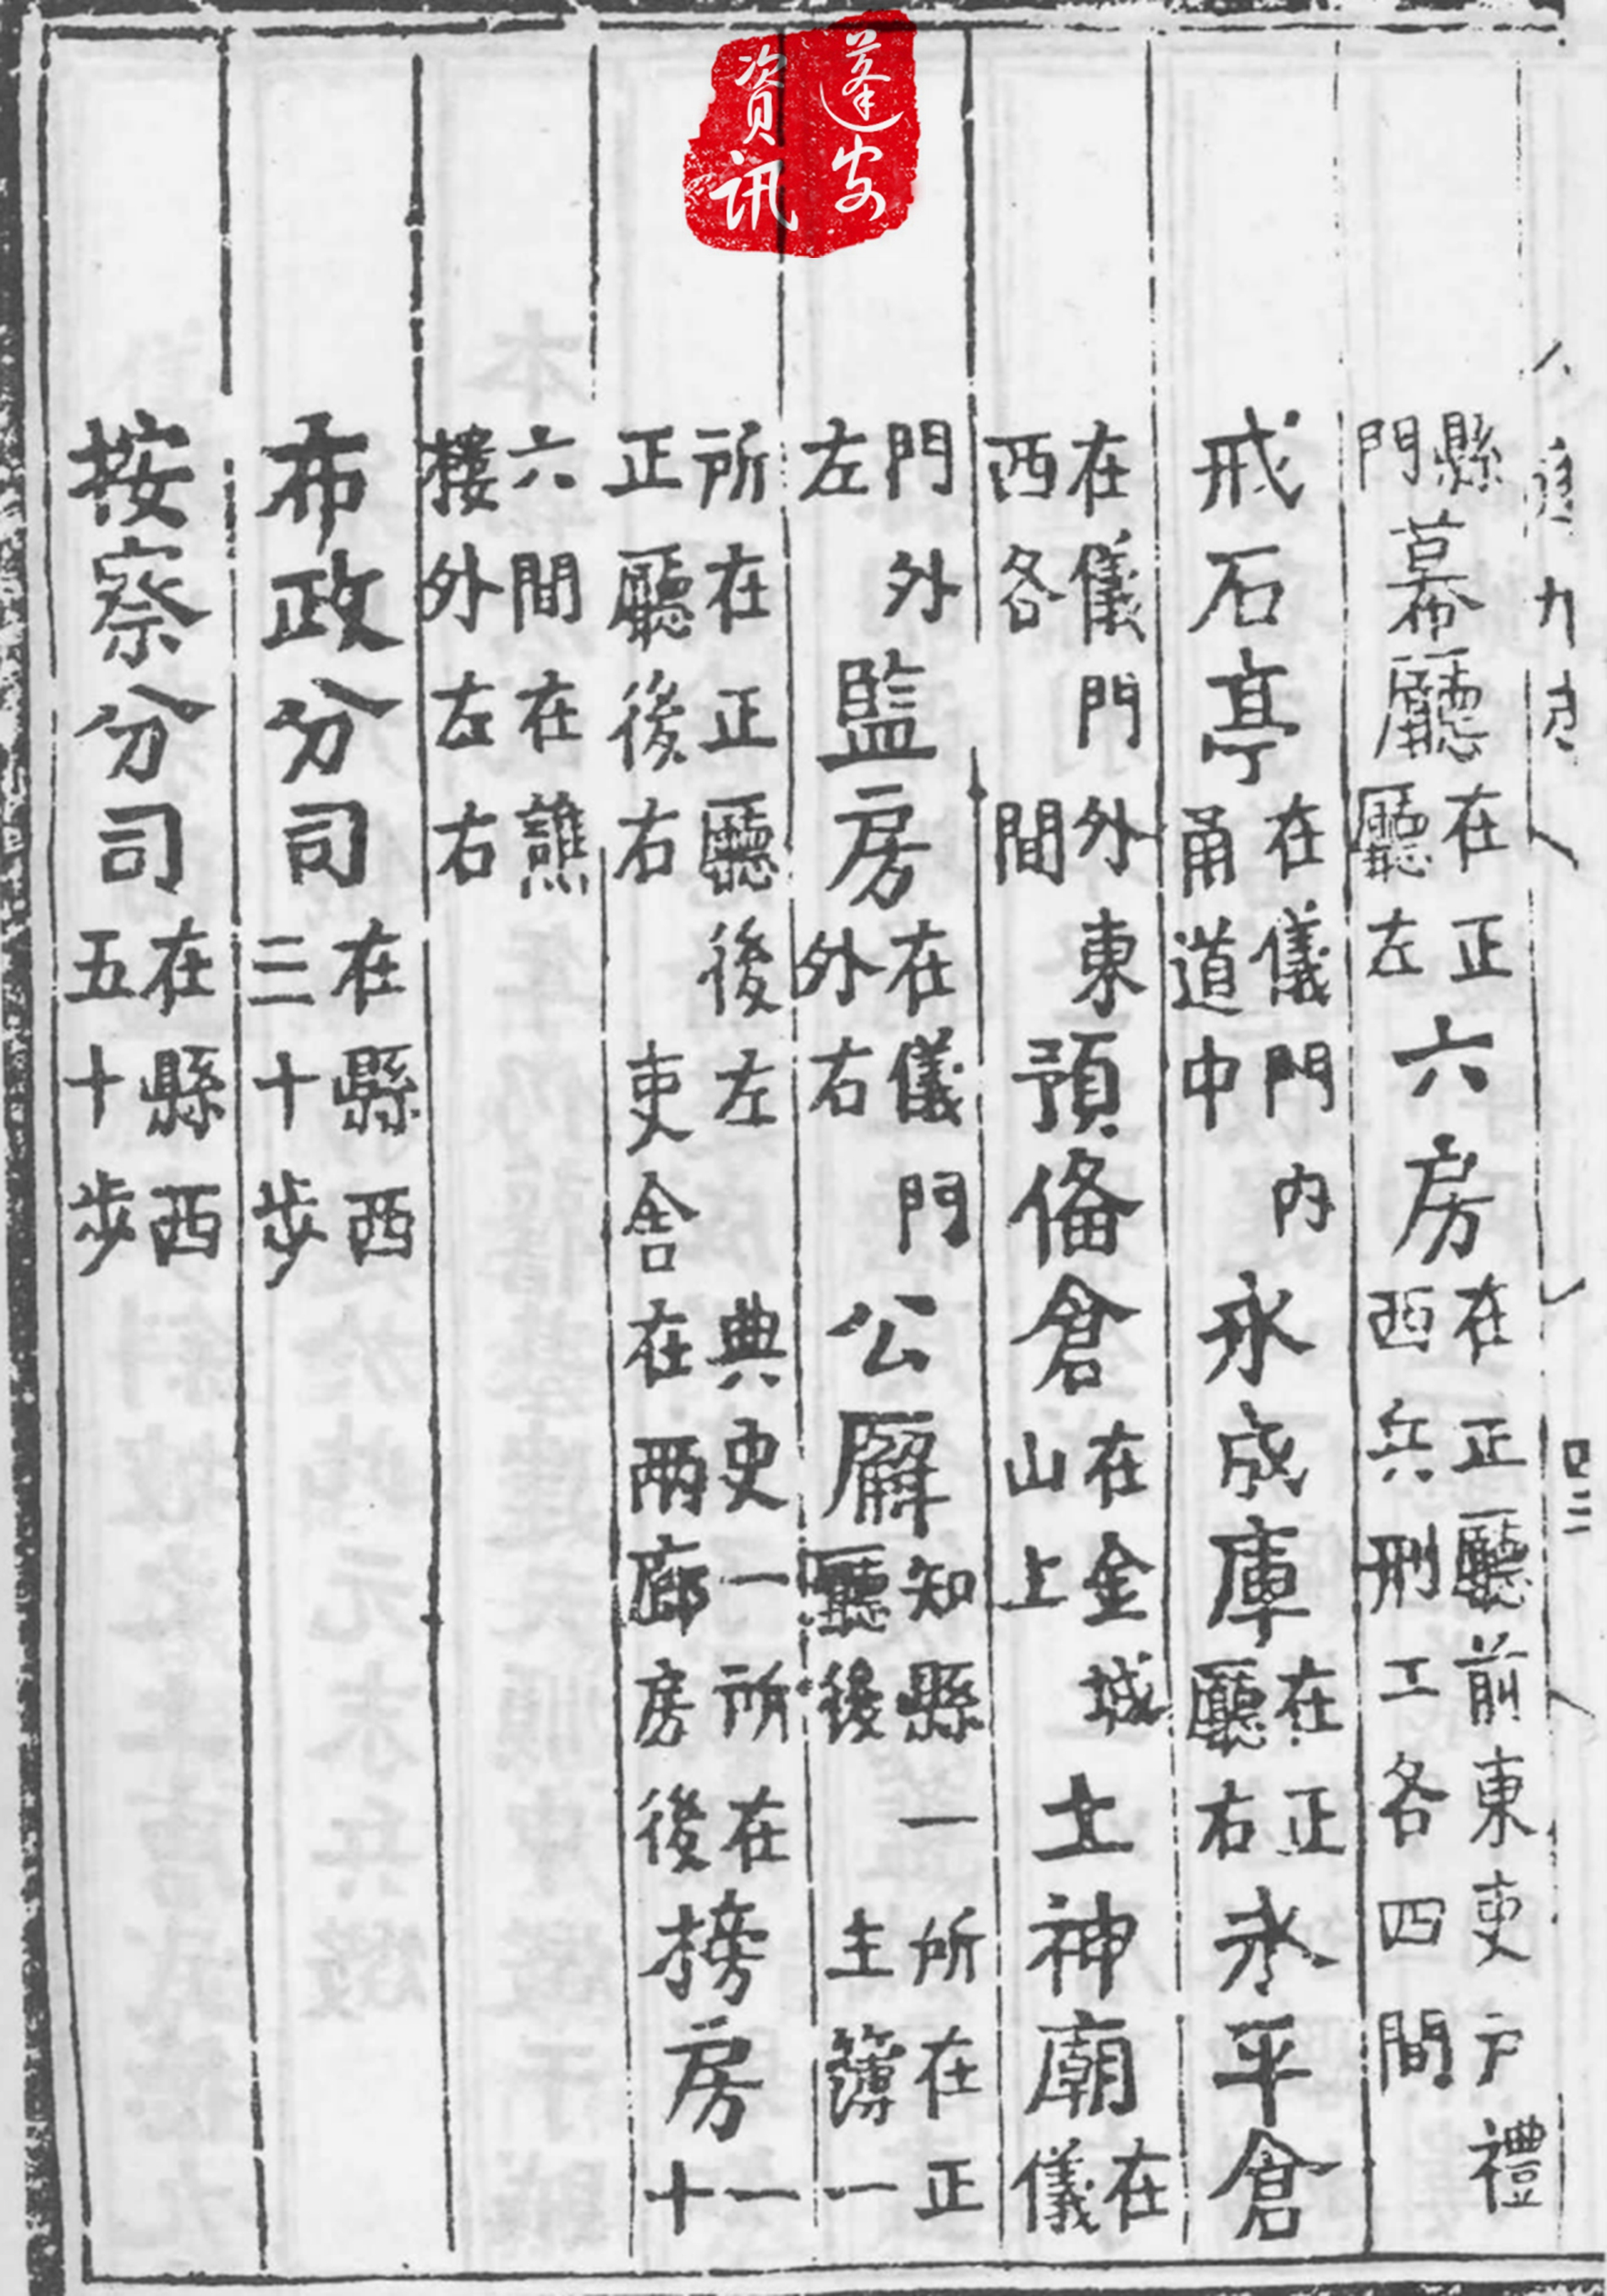 蓬安
资讯
縣門幕廳在正廳左六房在正廳前東吏户禮西兵刑工各四間
戒石亭在儀門内甬道中永成庫在正廳右永平倉
在儀門外東西各間預俻倉在金城山上土神廟在儀
門外左監房在儀門外右公廨知縣一所在正廳後主簿一
所在正廳後左典史一所在正廳後右吏舍在兩廊房後榜房一十
六間在譙樓外左右
布政分司在縣西三十步
按察分司在縣西五十步